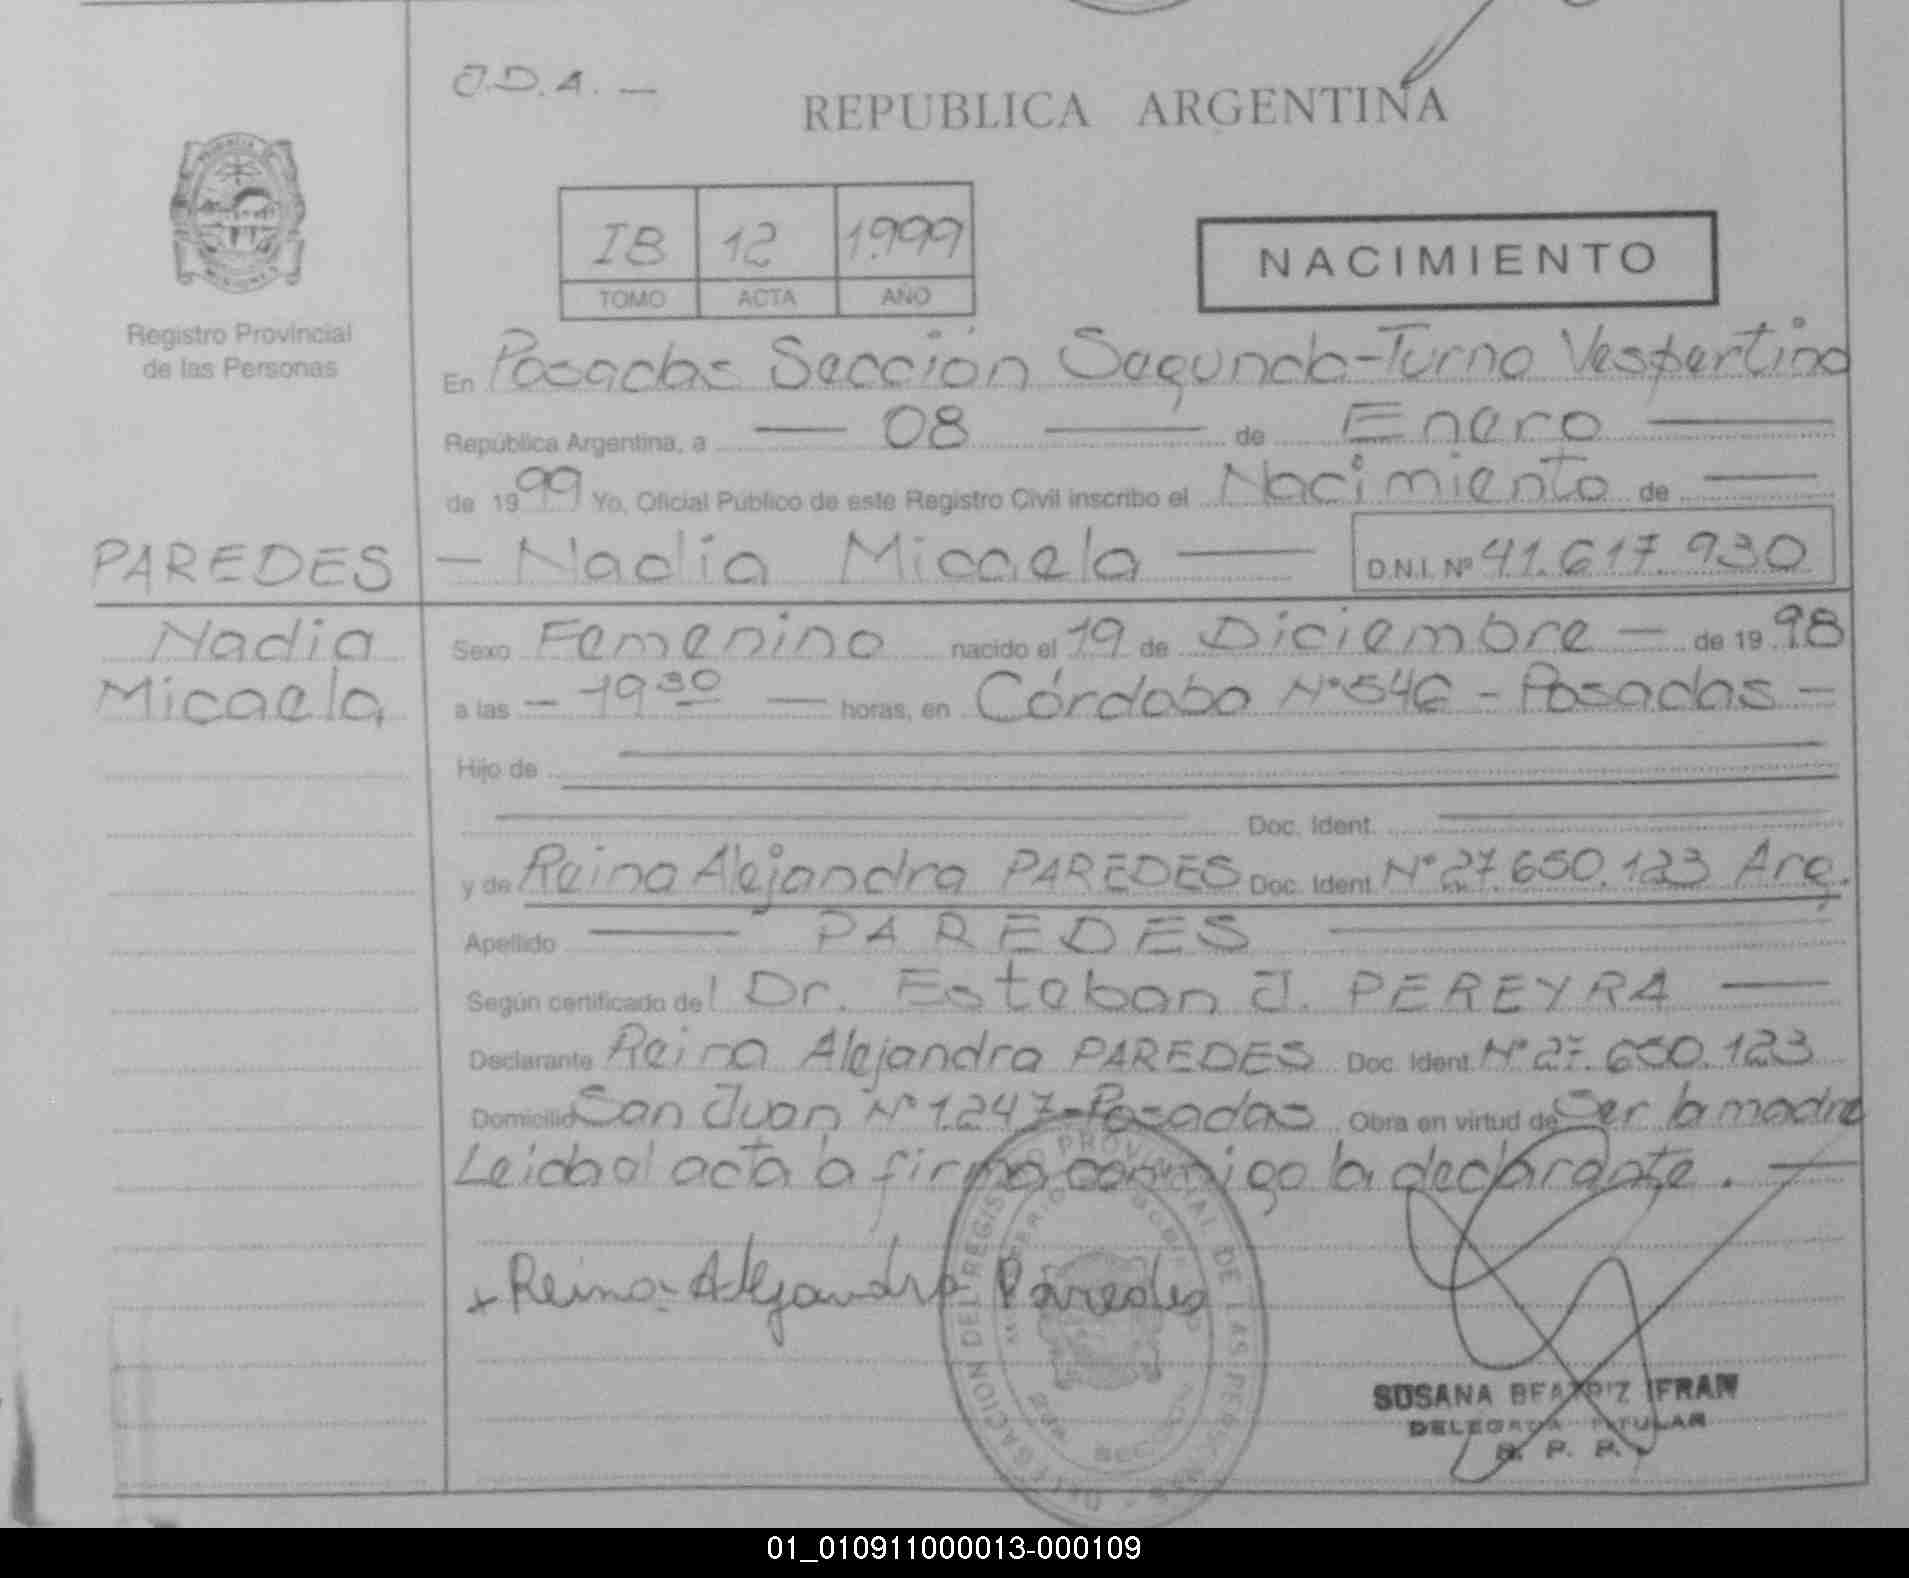 J.D.A. —
REPUBLICA ARGENTINA
IB 12 1.999
TOMO ACTA AÑO
NACIMIENTO
Registro Provincial
de las Personas
En Posadas Sección Segunda-Turno Vespertino
República Argentina, a — 08 — de Enero —
de 1999 Yo, Oficial Público de este Registro Civil inscribo el Nacimiento de —
PAREDES — Nadia Micaela — D.N.I. Nº 41.617.930
Nadia
Micaela
Sexo Femenino nacido el 19 de Diciembre — de 19 98
a las — 19 30 — horas, en Córdoba Nº 546 - Posadas —
Hijo de
Doc. Ident.
y de Reina Alejandra PAREDES Doc. Ident. Nº 27.650.123 Arg.
Apellido — PAREDES —
Según certificado del Dr. Esteban J. PEREYRA —
Declarante Reina Alejandra PAREDES Doc. Ident. Nº 27.650.123
Domicilio San Juan Nº 1.247-Posadas Obra en virtud de Ser la madre
Leida el acta la firma conmigo la declarante. —
x Reina Alejandra Paredes
DELEGACION DEL REGISTRO PROVINCIAL DE LAS PERSONAS
SUSANA BEATRIZ IFRAN
DELEGADA TITULAR
R. P. P.
01_010911000013-000109